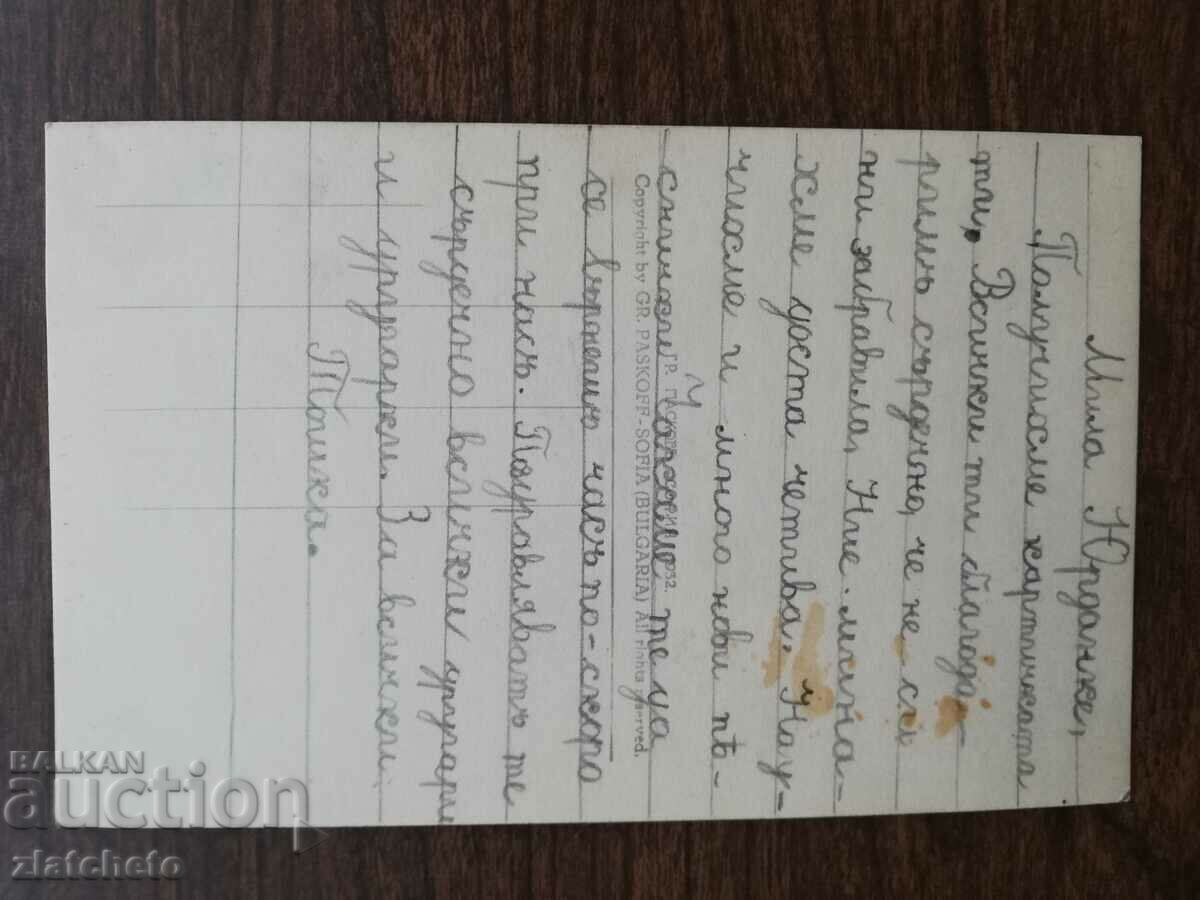 Мила Юрданке,
Получихме картичката
ти. Всички ти благода-
римъ сърдечно, че не си
ни забравила, Ние мина-
хме доста четива. Нау-
чихме и много нови пѣ-
снички. Чакаме те да
се върнешъ часъ по-скоро
при насъ. Поздравляватъ те
сърдечно всички другари
и другарки. За всички:
Тошка.
Copyright by GR. PASKOFF-SOFIA (BULGARIA) All rights reserved.
BALKAN
auction
zlatcheto